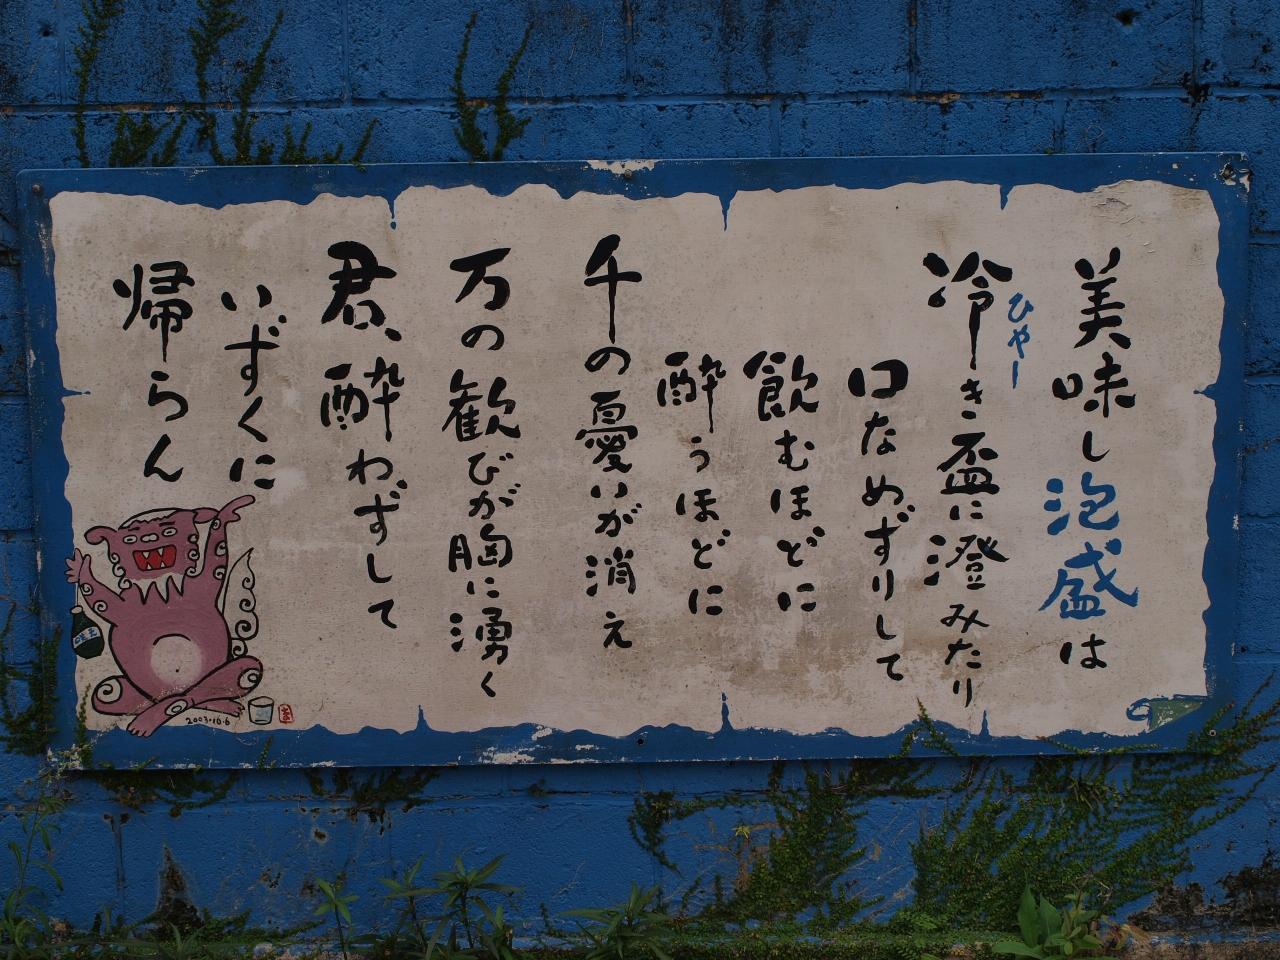 美味し泡盛は
冷き盃に澄みたり
ひやー
口なめずりして
飲むほどに
酔うほどに
千の憂いが消え
万の歓びが胸に湧く
君、酔わずして
いずくに
帰らん
2003.10.6